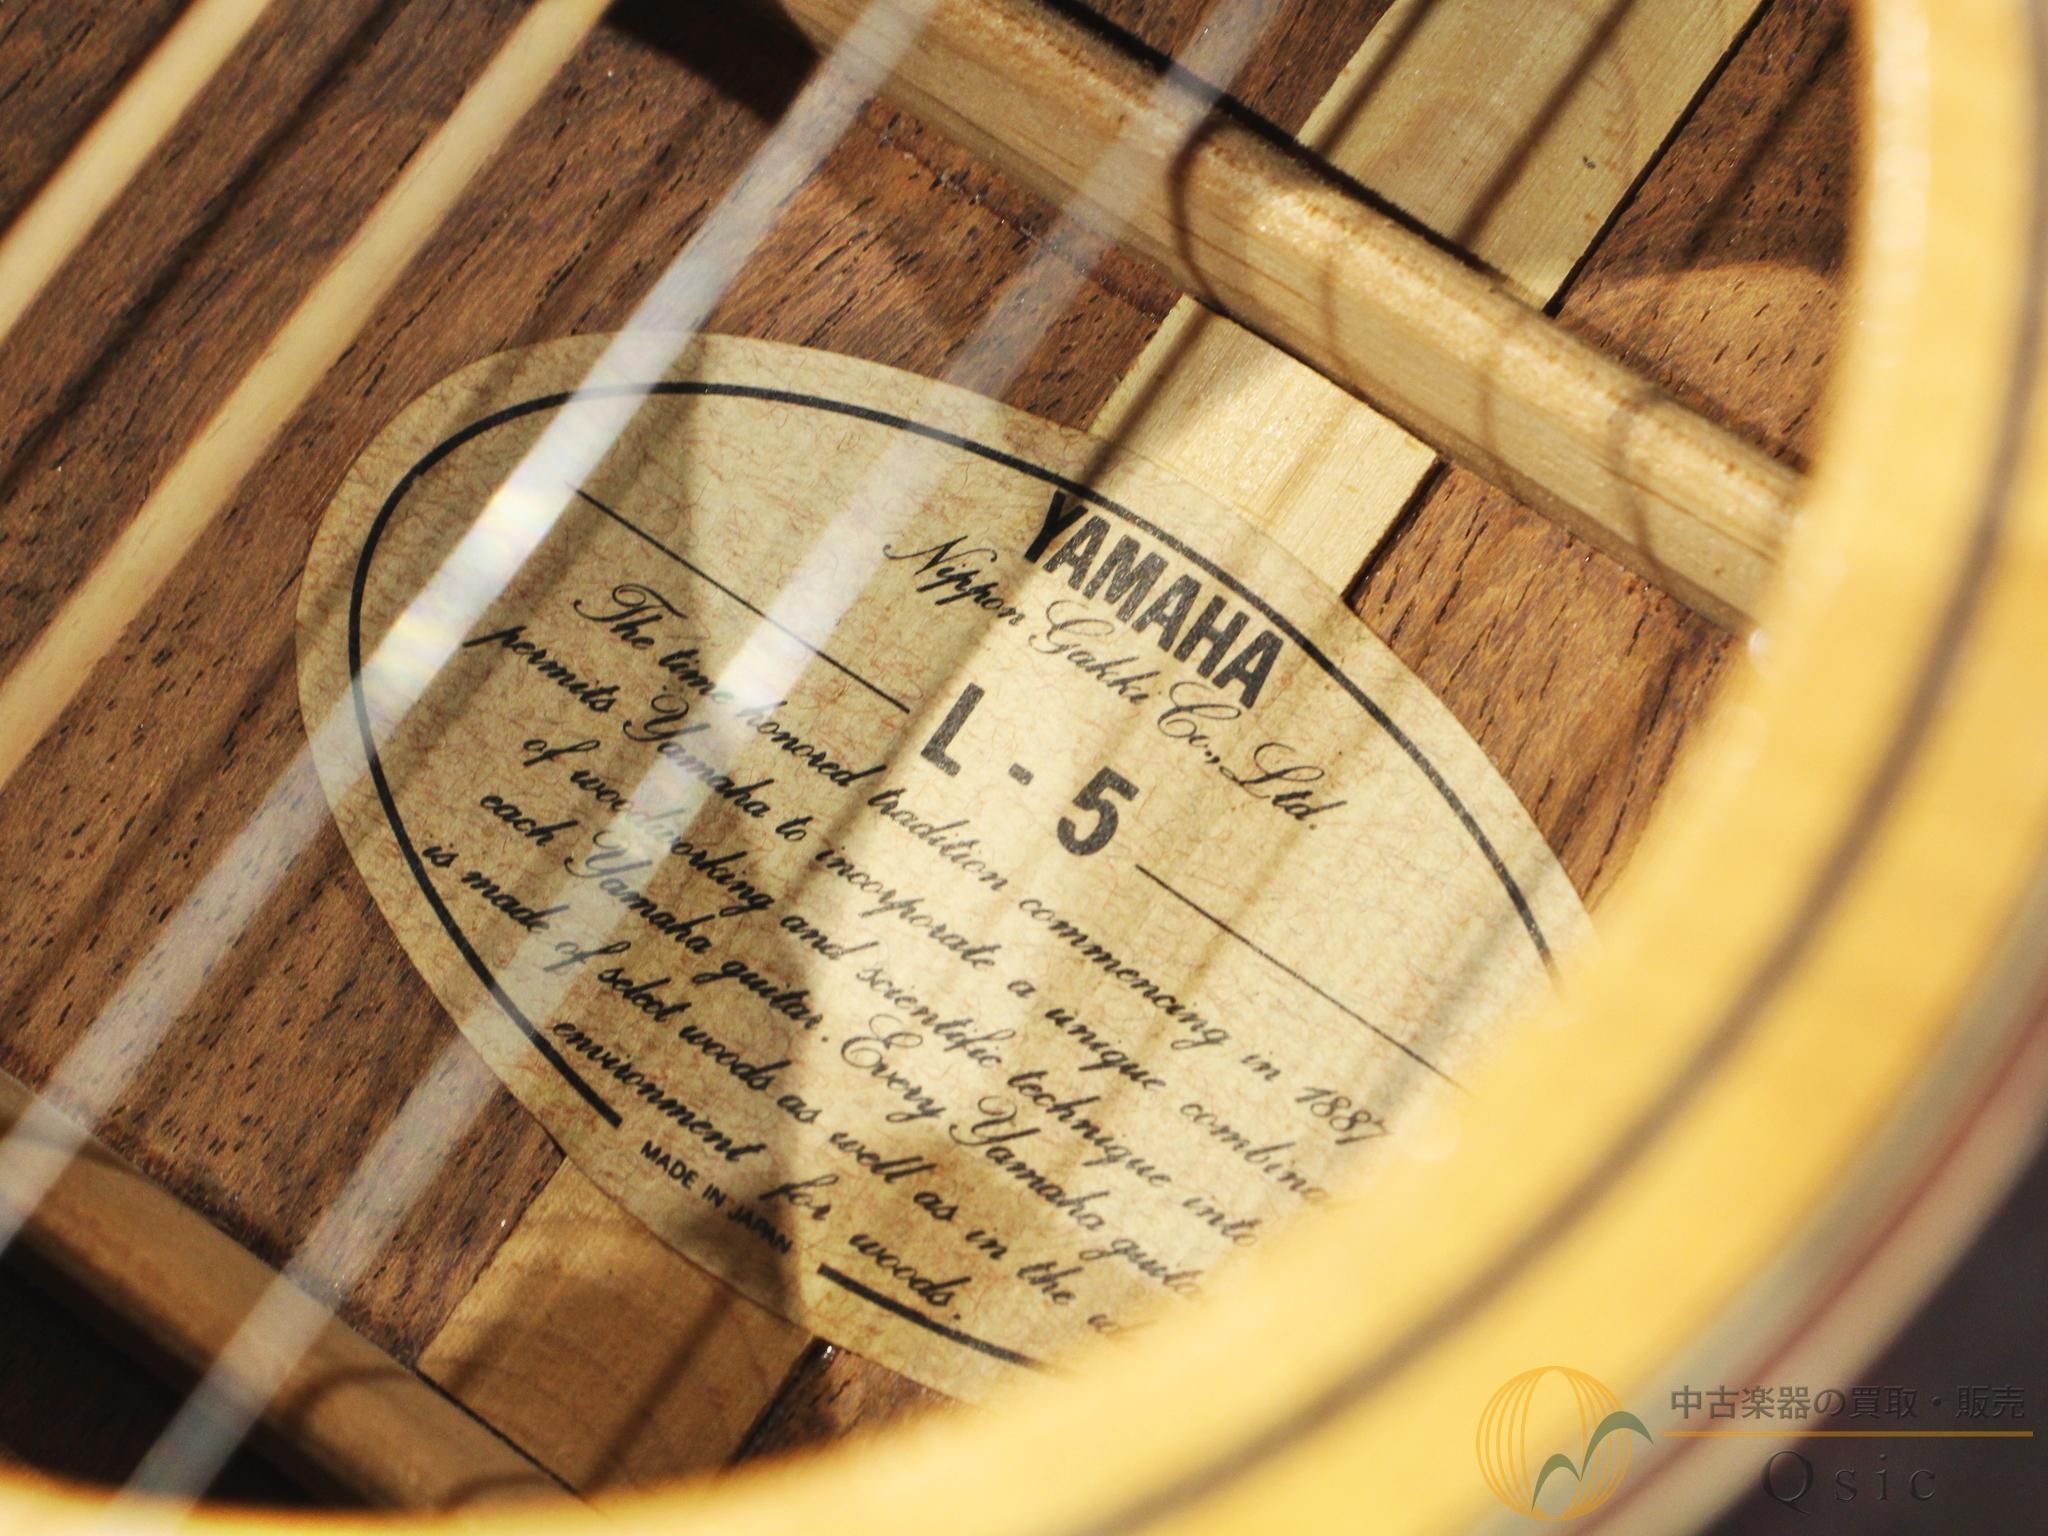 YAMAHA
Nippon Gakki Co., Ltd.
L - 5
The time honored tradition commencing in 1887
permits Yamaha to incorporate a unique
of woodworking and scientific technique into
each Yamaha guitar. Every Yamaha
is made of select woods as well as in the
environment for woods.
MADE IN JAPAN
中古楽器の買取・販売
Qsic